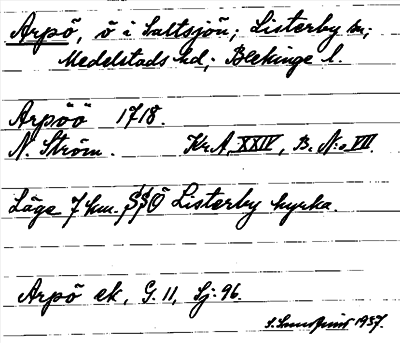 Arpö, ö i Saltsjön; Listerby sn;
Medelstads hd; Blekinge l.
Arpöö 1718.
N. Ström. Kr.A, XXIV, B. N:o VII.
Läge 7 km. SSÖ Listerby kyrka.
Arpö ek, G. 11, Sj. 96.
1937.